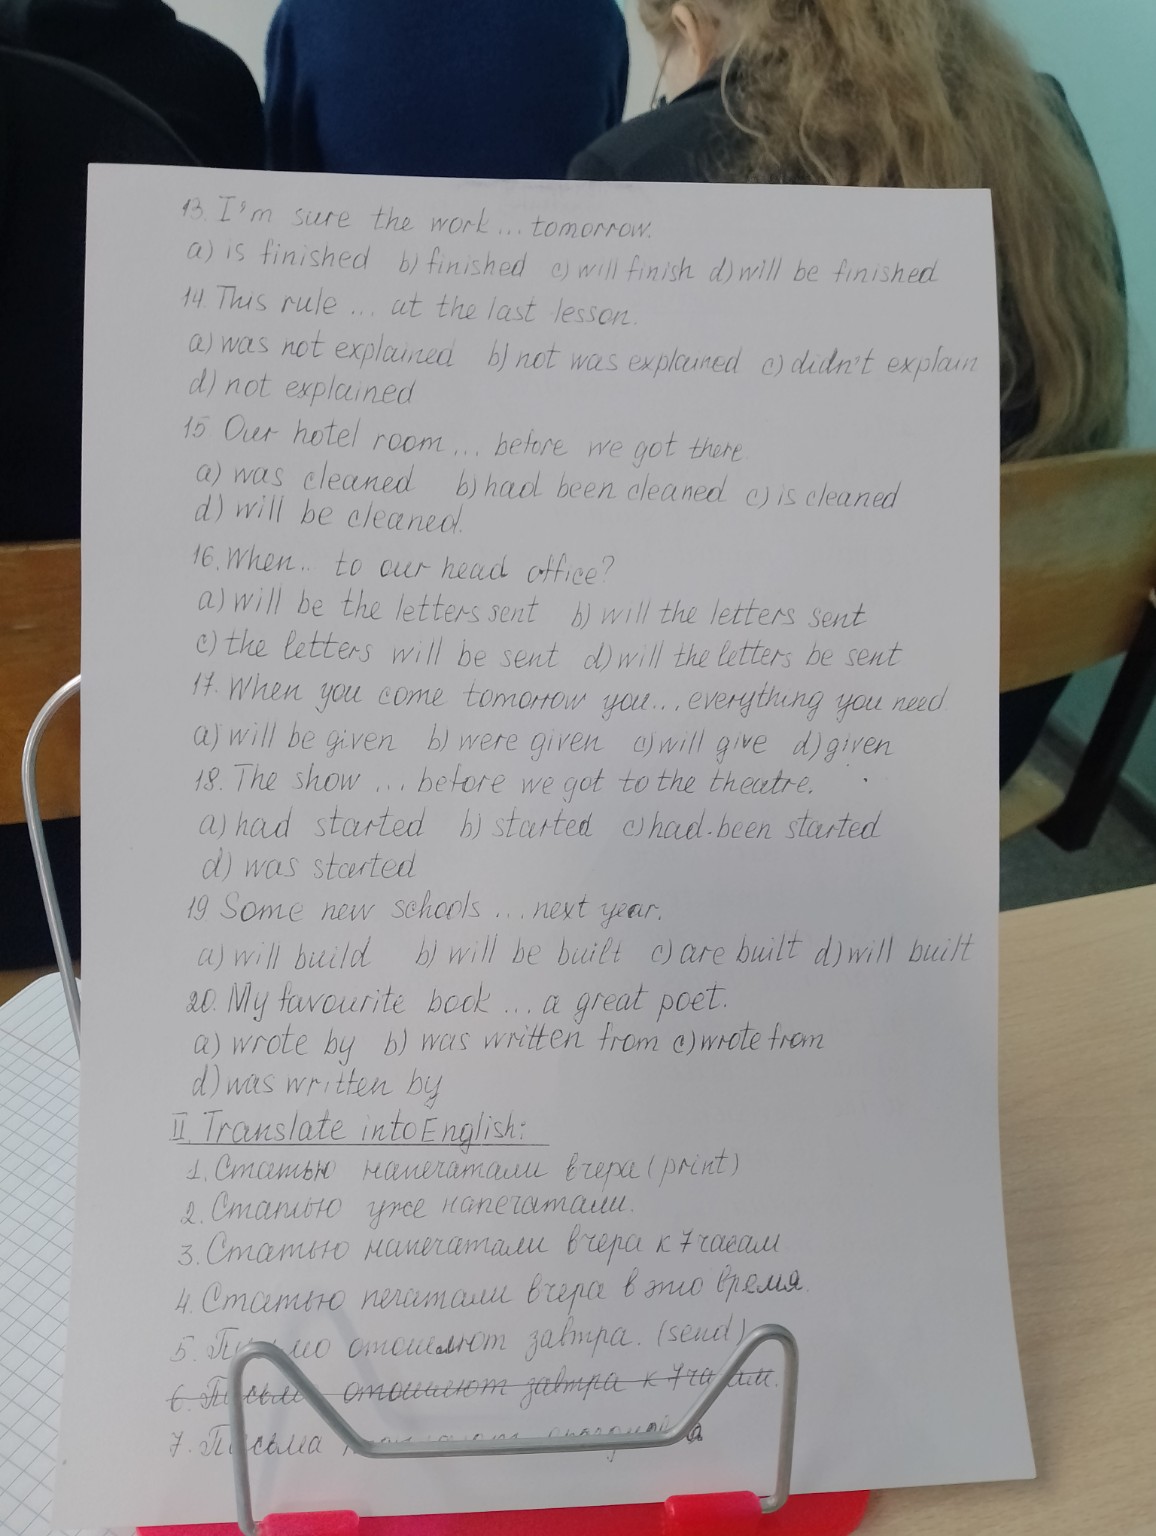 13. I'm sure the work ... tomorrow.
a) is finished b) finished c) will finish d) will be finished
14. This rule ... at the last lesson.
a) was not explained b) not was explained c) didn't explain
d) not explained
15 Our hotel room ... before we got there
a) was cleaned b) had been cleaned c) is cleaned
d) will be cleaned.
16. When .. to our head office?
a) will be the letters sent b) will the letters sent
c) the letters will be sent d) will the letters be sent
17. When you come tomorrow you ... everything you need
a) will be given b) were given c) will give d) given
18. The show ... before we got to the theatre.
a) had started b) started c) had been started
d) was started
19 Some new schools ... next year.
a) will build b) will be built c) are built d) will built
20. My favourite book ... a great poet.
a) wrote by b) was written from c) wrote from
d) was written by
II. Translate into English:
1. Статью напечатали вчера (print)
2. Статью уже напечатали.
3. Статью напечатали вчера к 7 часам
4. Статью печатали вчера в это время.
5. Письмо отошлют завтра. (send)
6. Письмо отошлют завтра к 7 часам.
7. Письма